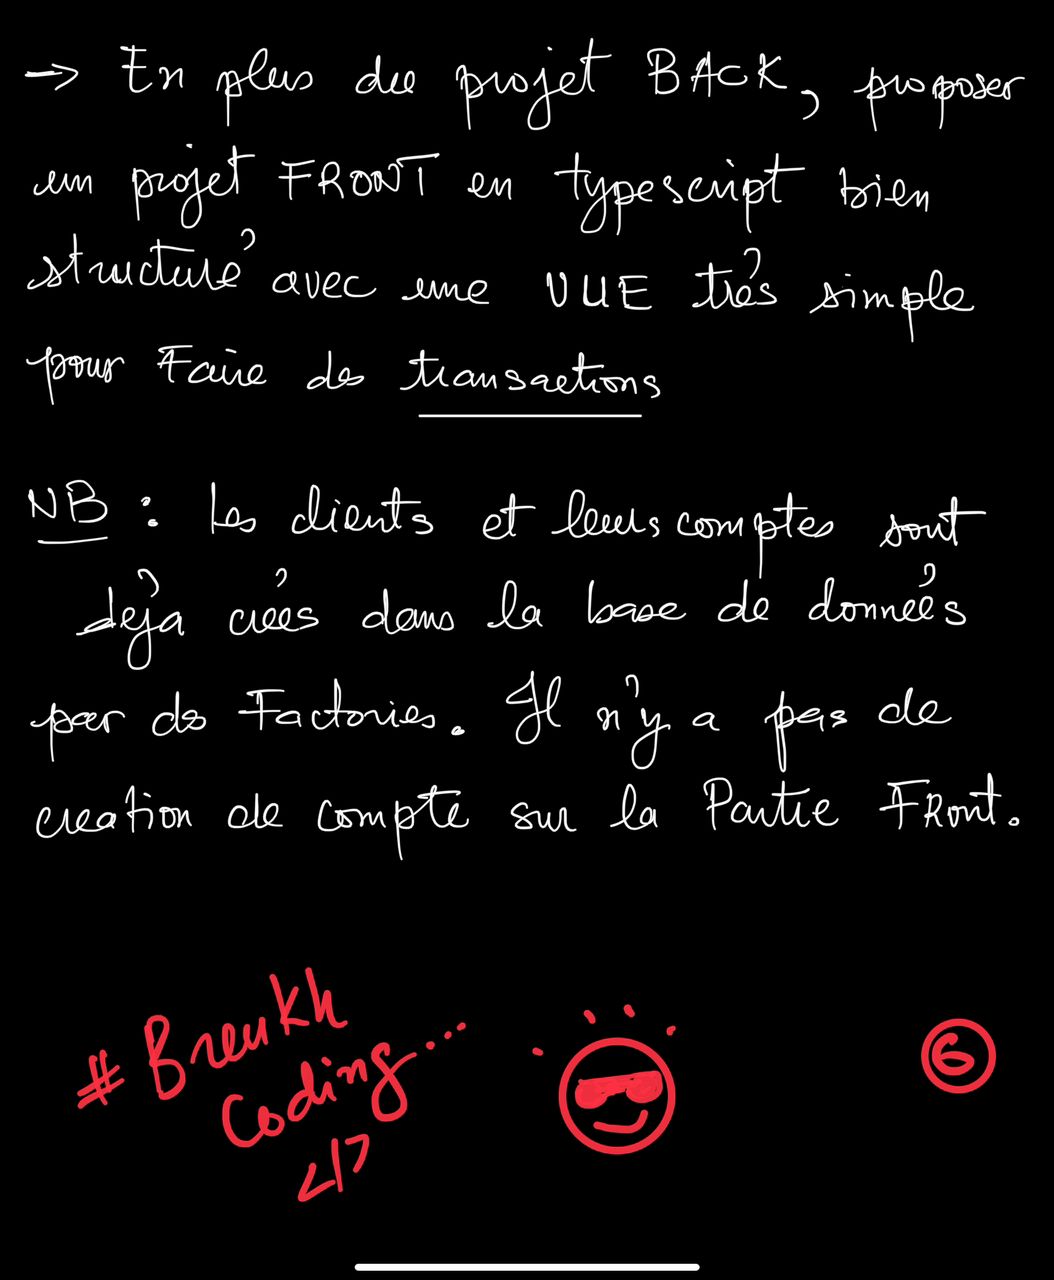 → En plus du projet BACK, proposer
un projet FRONT en typescript bien
structuré avec une VUE très simple
pour Faire des transactions
NB : Les clients et leurs comptes sont
déjà créés dans la base de données
par des Factories. Il n'y a pas de
creation de compte sur la Partie FRont.
#Breukh
Coding...
</>
6